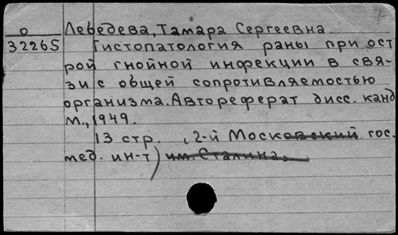 о Лебедева, Тамара Сергеевна.
32265 Гистопатология раны при ост
рой гнойной инфекции в свя-
зи с общей сопротивляемостью
организма. Автореферат дисс. канд
М., 1949.
13 стр. , 2-й Московский гос.
мед. ин-т) им. Сталина.